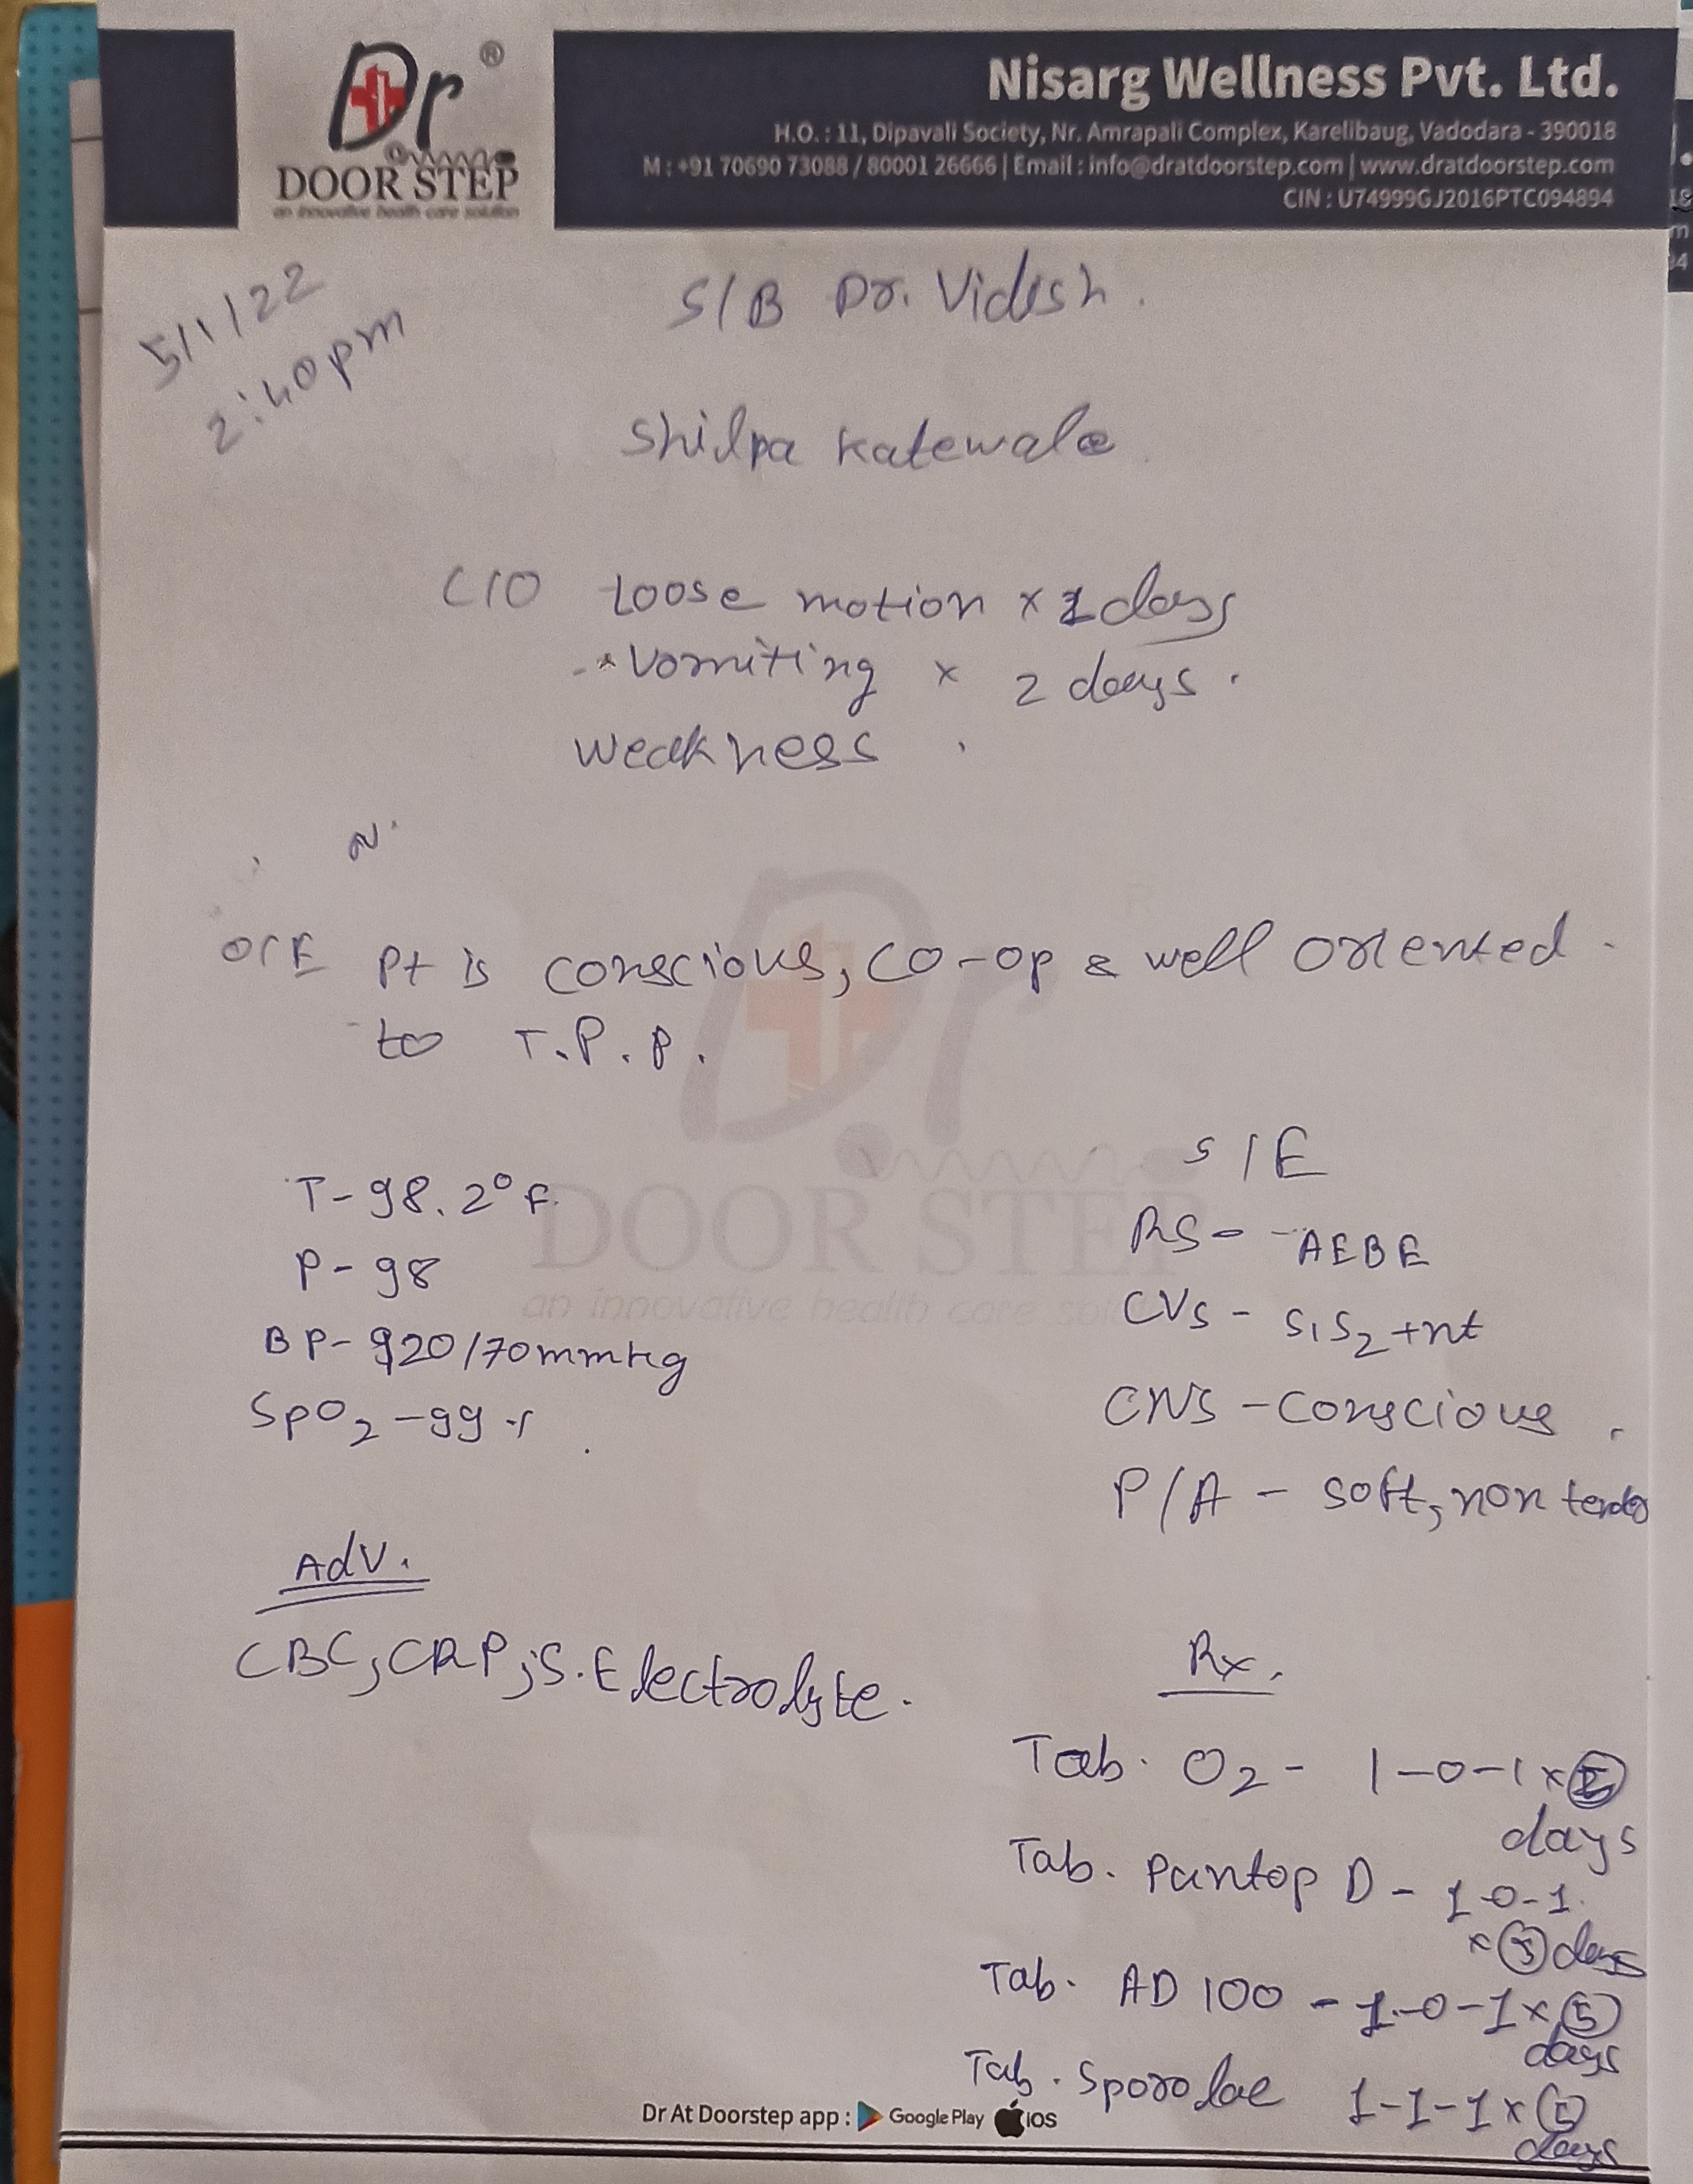 Dr ®
DOOR STEP
an innovative health care solution
Nisarg Wellness Pvt. Ltd.
H.O. : 11, Dipavali Society, Nr. Amrapali Complex, Karelibaug, Vadodara - 390018
M : +91 70690 73088 / 80001 26666 | Email : info@dratdoorstep.com | www.dratdoorstep.com
CIN : U74999GJ2016PTC094894
5/1/22
2:40pm
S/B Dr. Videsh.
Shilpa Katewale
C/O Loose motion x 1 days
- Vomiting x 2 days.
Weakness.
O/E Pt is conscious, co-op & well oriented
to T.P.P.
T- 98.2°F.
P- 98
BP- 120/70mmHg
SpO2 - 99 %
S/E
RS - AEBE
CVS - S1S2 +nt
CNS - Conscious.
P/A - Soft, non tender
Adv.
CBC, CRP, S. Electrolyte.
Rx.
Tab. O2 - 1-0-1 x 5
days
Tab. Pantop D - 1-0-1
x 5 days
Tab. AD 100 - 1-0-1 x 5
days
Tab. Sporolac 1-1-1 x 5
days
Dr
DOOR STEP
an innovative health care
Dr At Doorstep app : Google Play iOS